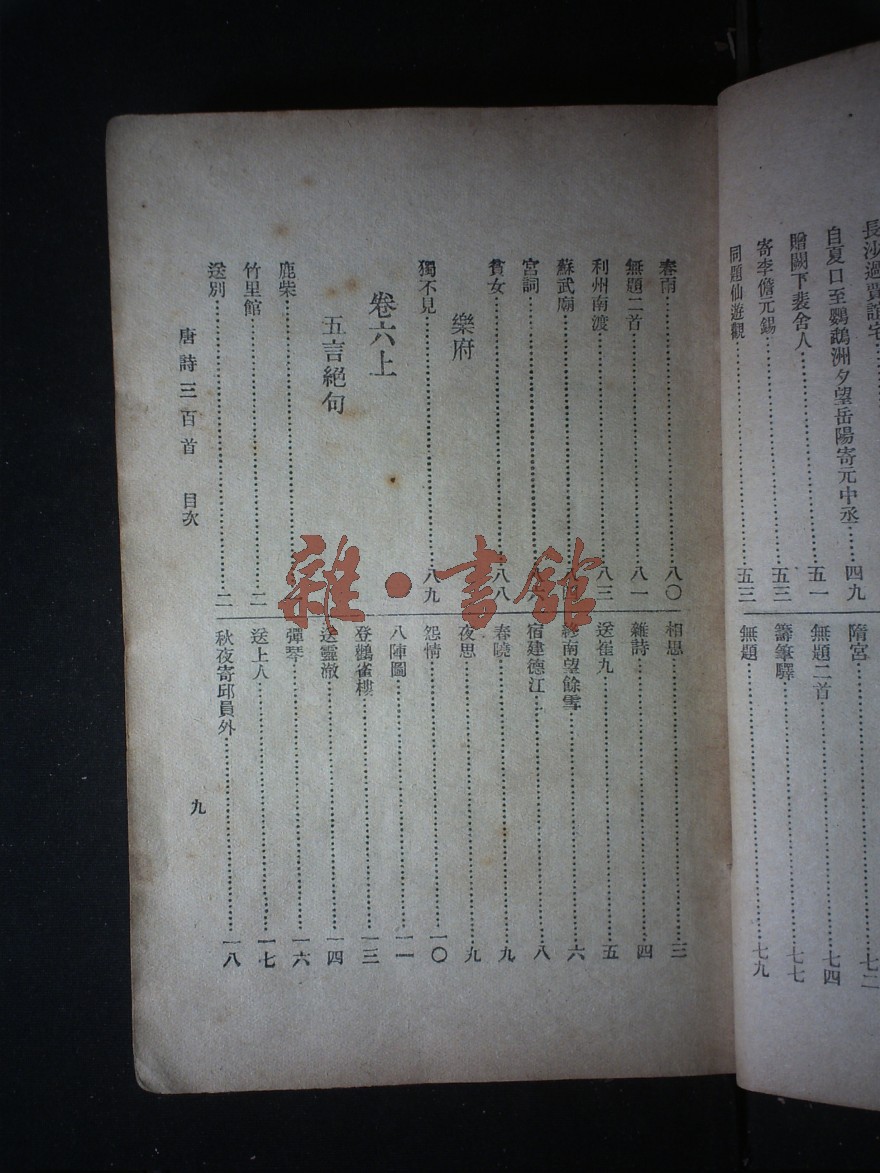 長沙過賈誼宅
自夏口至鸚鵡洲夕望岳陽寄元中丞……四九
贈闕下裴舍人……五一
寄李儋元錫……五三
同題仙遊觀……五三
隋宮……七二
無題二首……七四
籌筆驛……七七
無題……七九
春雨……八〇
無題二首……八一
利州南渡……八三
蘇武廟……
宮詞……
貧女……八八
樂府
獨不見……八九
卷六上
五言絕句
鹿柴……
竹里館……二
送別……二
相思……三
雜詩……四
送崔九……五
終南望餘雪……六
宿建德江……八
春曉……九
夜思……九
怨情……一〇
八陣圖……一一
登鸛雀樓……一三
送靈澈……一四
彈琴……一六
送上人……一七
秋夜寄邱員外……一八
唐詩三百首 目次
九
雜·書館